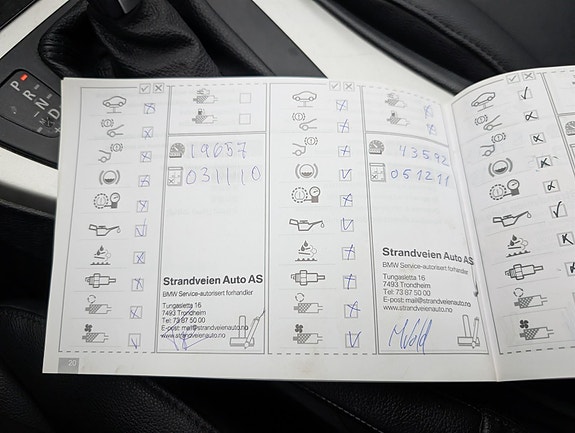 P
R
N
D
19657
031110
Strandveien Auto AS
BMW Service-autorisert forhandler
Tungasletta 16
7493 Trondheim
Tel: 73 87 50 00
E-post: mail@strandveienauto.no
www.strandveienauto.no
20
43592
051211
Strandveien Auto AS
BMW Service-autorisert forhandler
Tungasletta 16
7493 Trondheim
Tel: 73 87 50 00
E-post: mail@strandveienauto.no
www.strandveienauto.no